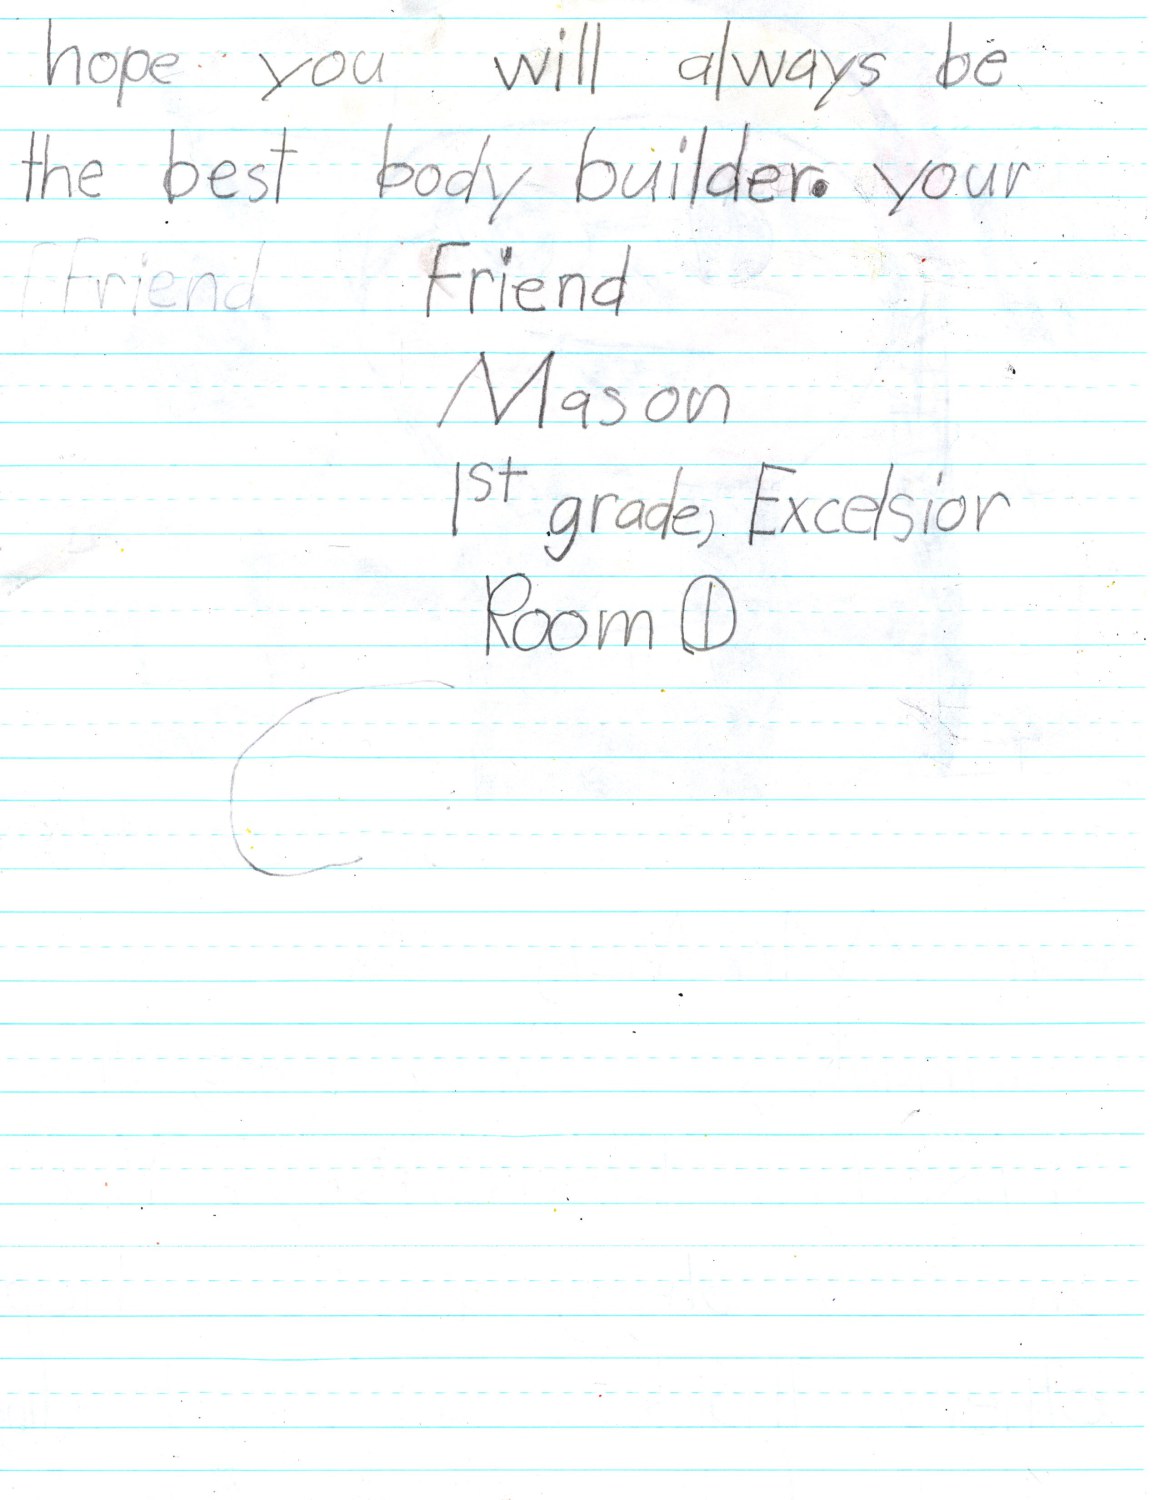 hope you will always be
the best body builder. your
Friend Friend
Mason
1st grade, Excelsior
Room 1